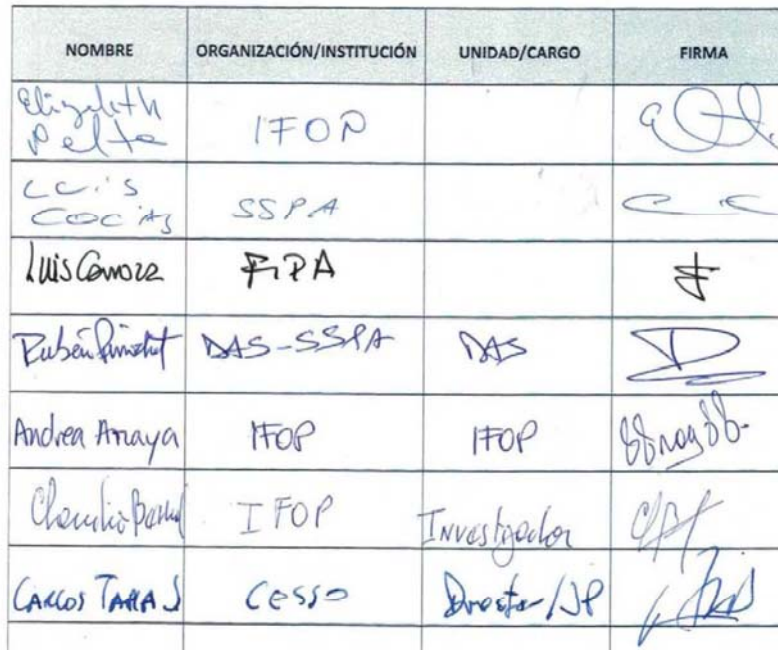 NOMBRE ORGANIZACIÓN/INSTITUCIÓN UNIDAD/CARGO FIRMA
Elizabeth
Pelta IFOP
Luis
Cocias SSPA
Luis FIPA
Rubén DAS-SSPA DAS
Andrea Araya IFOP IFOP
Claudio IFOP Investigador
CARLOS TAPIA J CESSO Director/JP